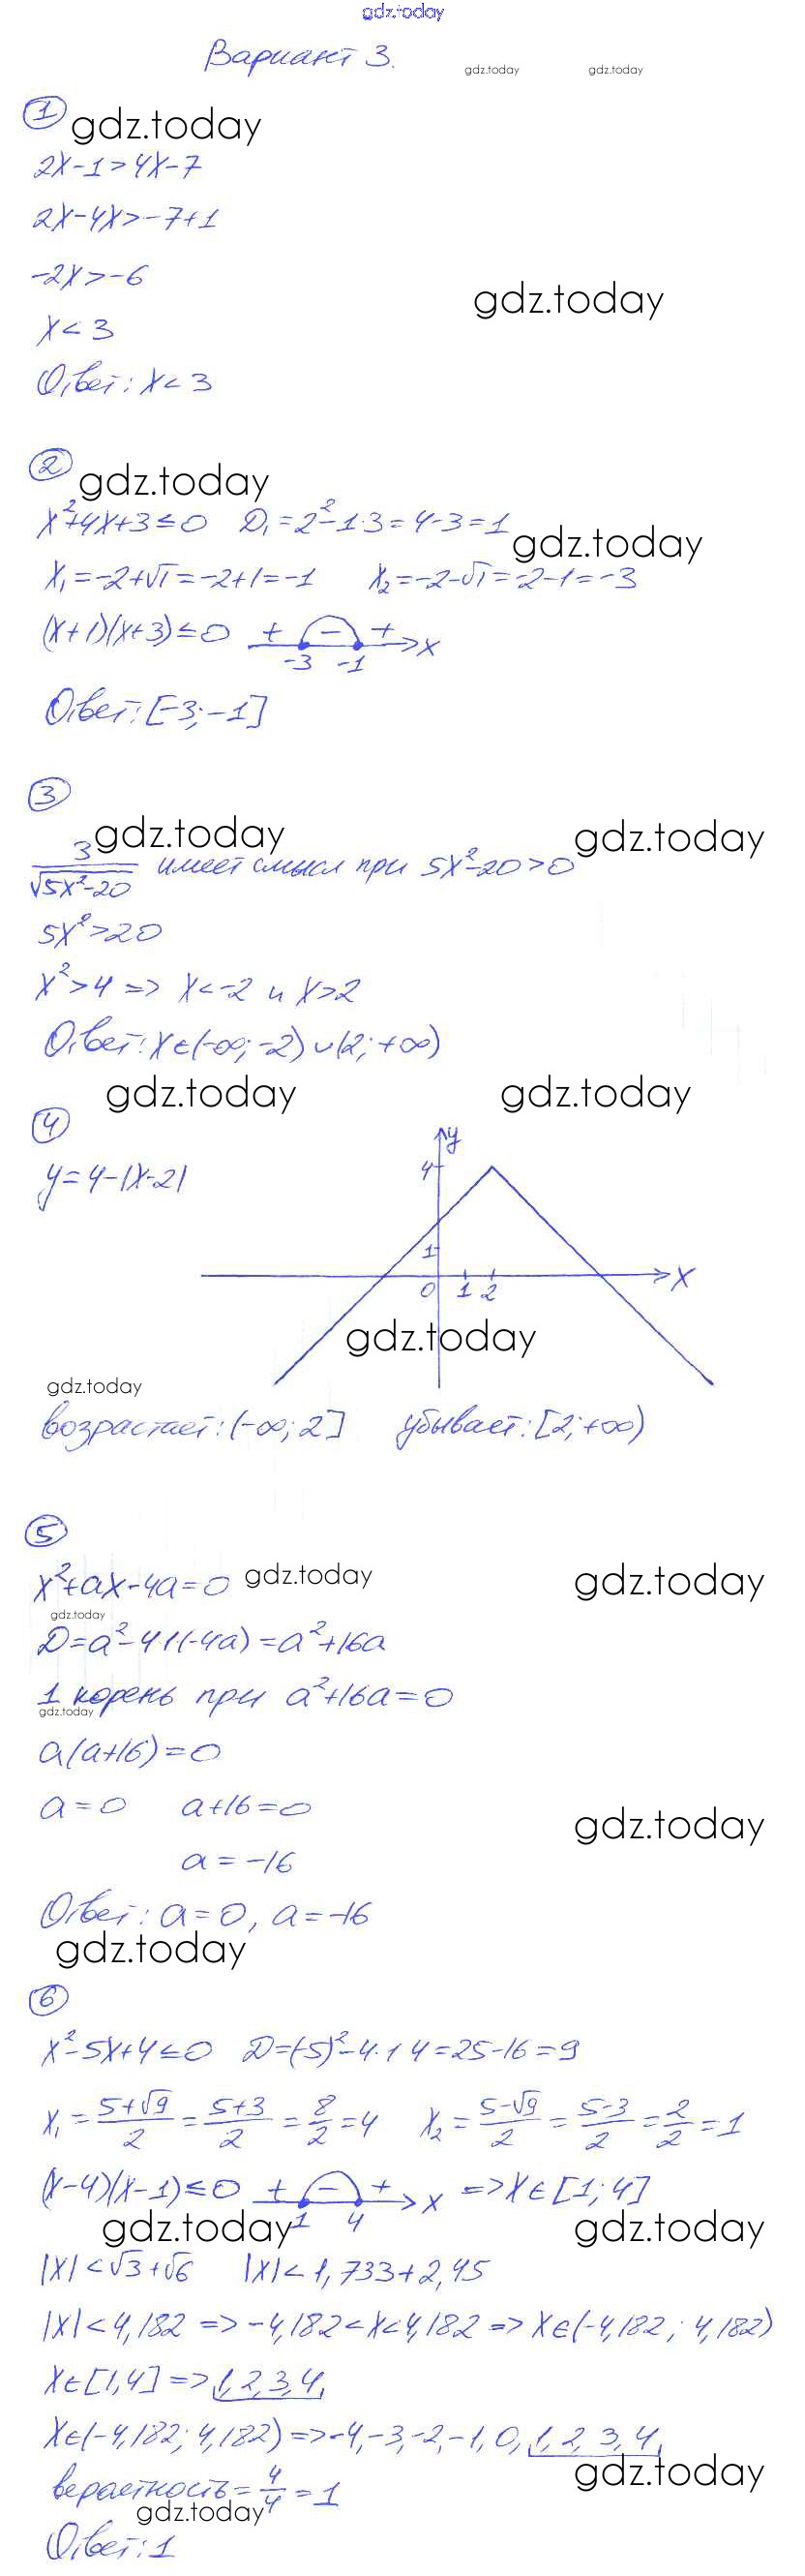 gdz.today
Вариант 3.
gdz.today gdz.today
1
gdz.today
2x-1>4x-7
2x-4x>-7+1
-2x>-6
gdz.today
x<3
Ответ: x<3
2
gdz.today
x²+4x+3≤0 D₁=2²-1·3=4-3=1
gdz.today
x₁=-2+√1=-2+1=-1 x₂=-2-√1=-2-1=-3
(x+1)(x+3)≤0 + - + x
-3 -1
Ответ: [-3;-1]
3
gdz.today gdz.today
3/√5x²-20 имеет смысл при 5x²-20>0
5x²>20
x²>4 => x<-2 и x>2
Ответ: x∈(-∞;-2)∪(2;+∞)
gdz.today gdz.today
4
y=4-|x-2|
y
4
1
0 1 2 x
gdz.today
gdz.today
возрастает: (-∞;2] убывает: [2;+∞)
5
x²+ax-4a=0 gdz.today gdz.today
gdz.today
D=a²-4·1·(-4a)=a²+16a
1 корень при a²+16a=0
gdz.today
a(a+16)=0
a=0 a+16=0
gdz.today
a=-16
Ответ: a=0, a=-16
gdz.today
6
x²-5x+4≤0 D=(-5)²-4·1·4=25-16=9
x₁=5+√9/2=5+3/2=8/2=4 x₂=5-√9/2=5-3/2=2/2=1
(x-4)(x-1)≤0 + - + x =>x∈[1;4]
1 4
gdz.today gdz.today
|x|<√3+√6 |x|<1,733+2,45
|x|<4,182 => -4,182<x<4,182 => x∈(-4,182; 4,182)
x∈[1,4] => 1,2,3,4,
x∈(-4,182; 4,182) => -4,-3,-2,-1,0,1,2,3,4,
gdz.today
верастность=4/4=1
gdz.today
Ответ: 1